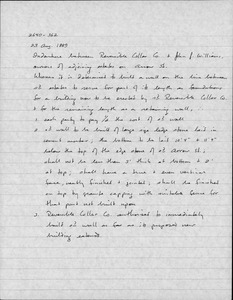 2290-362
23 Aug. 1889
Indenture between Reversible Collar Co. & John J. Williams,
owners of adjoining estates on Arrow St.
Whereas it is determined to build a wall on the line between
sd estates to serve for part of its length as foundations
for a building now to be erected by sd Reversible Collar Co.
& for the remaining length as a retaining wall,
1. each party to pay ½ the cost of sd wall
2. sd wall to be built of large size ledge stone laid in
cement mortar; the bottom to be laid
below the top of the edge stone of sd Arrow St.;
shall not be less than 3' thick at bottom & 2'
at top; shall have a true & even vertical
face, neatly finished & pointed; shall be finished
on top by granite capping with suitable fence for
that part not built upon
3. Reversible Collar Co. authorized to immediately
build sd wall as far as its proposed new
building extends.